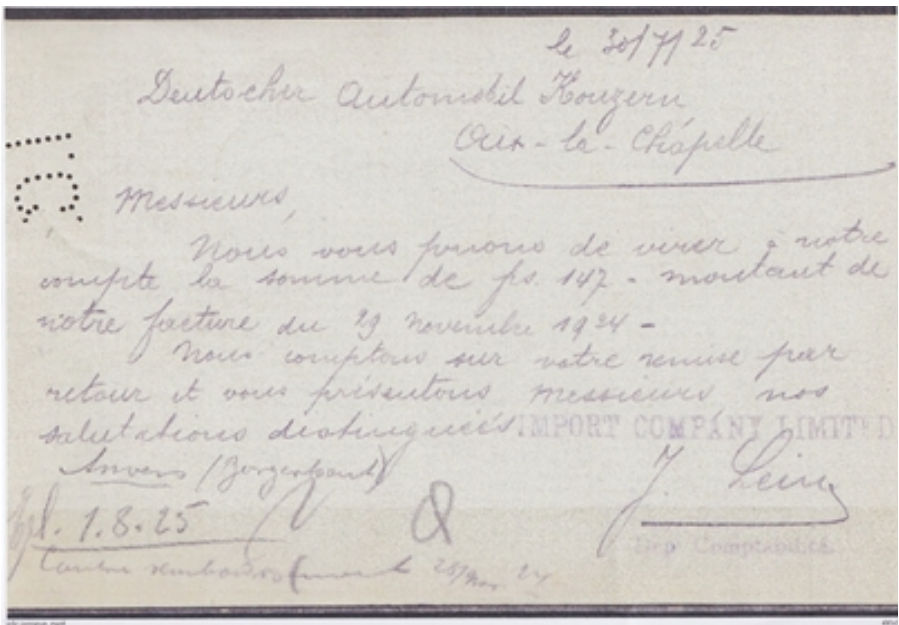 le 30/7/25
Deutscher Automobil Konzern
Aix-la-Chapelle
Messieurs,
Nous vous prions de virer à notre
compte la somme de frs. 147.- montant de
notre facture du 29 novembre 1924 -
Nous comptons sur votre remise par
retour et vous présentons Messieurs, nos
salutations distinguées
IMPORT COMPANY LIMITED
Anvers (Borgerhout)
J.
Dep Comptabilité.
1.8.25